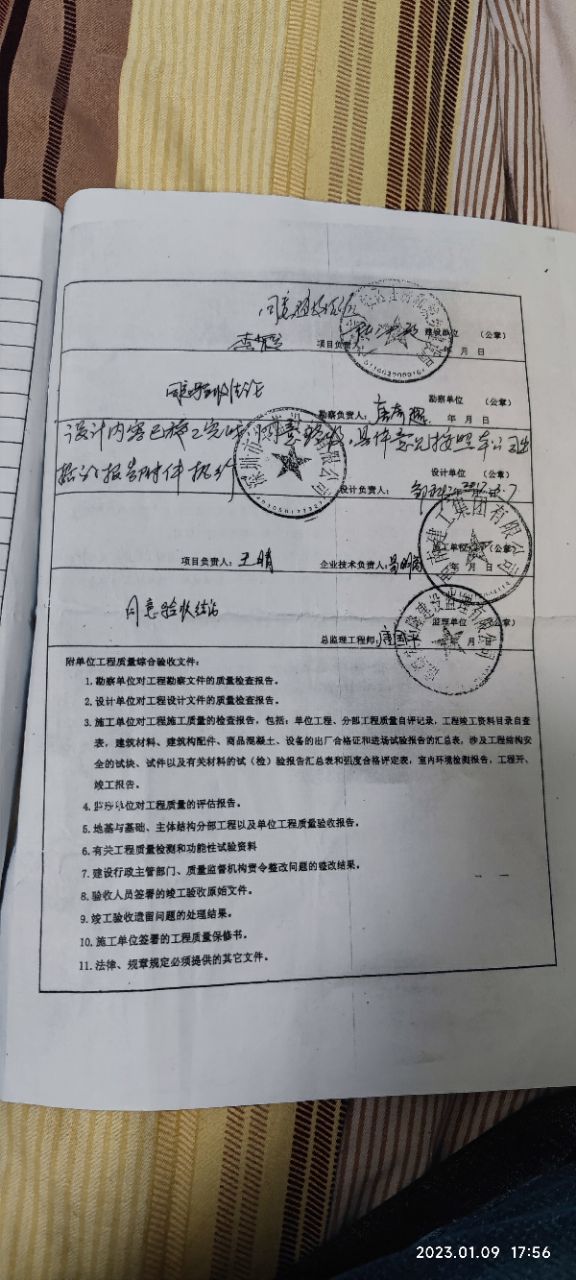 同意验收结论
项目负责人： 建设单位 （公章）
年 月 日
同意验收结论
勘察单位 （公章）
勘察负责人： 年 月 日
设计内容已施工完毕，同意验收，具体意见按照本公司出
报告附件执行
设计单位 （公章）
设计负责人：
深圳市 有限公司
建工集团有限公司
施工单位 （公章）
项目负责人：王晴 企业技术负责人： 年 月 日
同意验收结论
建设监理有限公司
监理单位 （公章）
总监理工程师：唐国平 年 月 日
附单位工程质量综合验收文件：
1. 勘察单位对工程勘察文件的质量检查报告。
2. 设计单位对工程设计文件的质量检查报告。
3. 施工单位对工程施工质量的检查报告，包括：单位工程、分部工程质量自评记录，工程竣工资料目录自查
表，建筑材料、建筑构配件、商品混凝土、设备的出厂合格证和进场试验报告的汇总表，涉及工程结构安
全的试块、试件以及有关材料的试（检）验报告汇总表和强度合格评定表，室内环境检测报告，工程开、
竣工报告。
4. 监理单位对工程质量的评估报告。
5. 地基与基础、主体结构分部工程以及单位工程质量验收报告。
6. 有关工程质量检测和功能性试验资料
7. 建设行政主管部门、质量监督机构责令整改问题的整改结果。
8. 验收人员签署的竣工验收原始文件。
9. 竣工验收遗留问题的处理结果。
10. 施工单位签署的工程质量保修书。
11. 法律、规章规定必须提供的其它文件。
2023.01.09 17:56